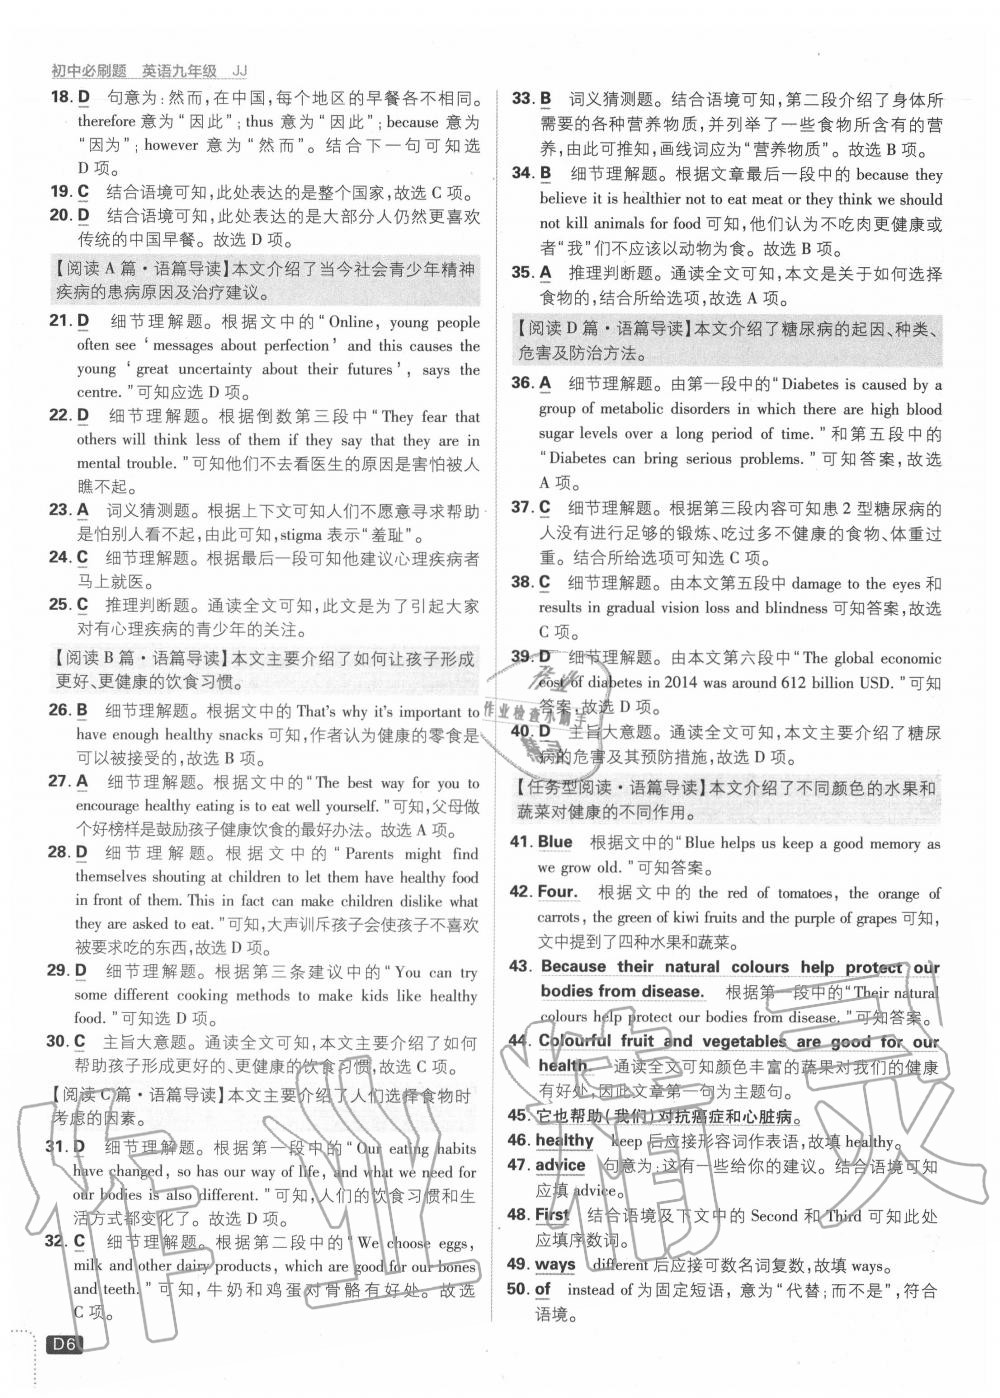 初中必刷题 英语九年级 JJ
18. D 句意为:然而,在中国,每个地区的早餐各不相同。
therefore 意为“因此”;thus 意为“因此”;because 意为
“因为”;however 意为“然而”。结合下一句可知选
D 项。
19. C 结合语境可知,此处表达的是整个国家,故选 C 项。
20. D 结合语境可知,此处表达的是大部分人仍然更喜欢
传统的中国早餐。故选 D 项。
【阅读 A 篇·语篇导读】本文介绍了当今社会青少年精神
疾病的患病原因及治疗建议。
21. D 细节理解题。根据文中的“Online, young people
often see ‘messages about perfection’ and this causes the
young ‘great uncertainty about their futures’, says the
centre.”可知应选 D 项。
22. D 细节理解题。根据倒数第三段中“They fear that
others will think less of them if they say that they are in
mental trouble.”可知他们不去看医生的原因是害怕被人
瞧不起。
23. A 词义猜测题。根据上下文可知人们不愿意寻求帮助
是怕别人看不起,由此可知,stigma 表示“羞耻”。
24. C 细节理解题。根据最后一段可知他建议心理疾病者
马上就医。
25. C 推理判断题。通读全文可知,此文是为了引起大家
对有心理疾病的青少年的关注。
【阅读 B 篇·语篇导读】本文主要介绍了如何让孩子形成
更好、更健康的饮食习惯。
26. B 细节理解题。根据文中的 That's why it's important to
have enough healthy snacks 可知,作者认为健康的零食是
可以被接受的,故选 B 项。
27. A 细节理解题。根据文中的“The best way for you to
encourage healthy eating is to eat well yourself.”可知,父母做
个好榜样是鼓励孩子健康饮食的最好办法。故选 A 项。
28. D 细节理解题。根据文中的“Parents might find
themselves shouting at children to let them have healthy food
in front of them. This in fact can make children dislike what
they are asked to eat.”可知,大声训斥孩子会使孩子不喜欢
被要求吃的东西,故选 D 项。
29. D 细节理解题。根据第三条建议中的“You can try
some different cooking methods to make kids like healthy
food.”可知选 D 项。
30. C 主旨大意题。通读全文可知,本文主要介绍了如何
帮助孩子形成更好的、更健康的饮食习惯,故选 C 项。
【阅读 C 篇·语篇导读】本文主要介绍了人们选择食物时
考虑的因素。
31. D 细节理解题。根据第一段中的“Our eating habits
have changed, so has our way of life, and what we need for
our bodies is also different.”可知,人们的饮食习惯和生
活方式都变化了。故选 D 项。
32. C 细节理解题。根据第二段中的“We choose eggs,
milk and other dairy products, which are good for our bones
and teeth.”可知,牛奶和鸡蛋对骨骼有好处。故选
C 项。
D6
33. B 词义猜测题。结合语境可知,第二段介绍了身体所
需要的各种营养物质,并列举了一些食物所含有的营
养,由此可推知,画线词应为“营养物质”。故选 B 项。
34. B 细节理解题。根据文章最后一段中的 because they
believe it is healthier not to eat meat or they think we should
not kill animals for food 可知,他们认为不吃肉更健康或
者“我”们不应该以动物为食。故选 B 项。
35. A 推理判断题。通读全文可知,本文是关于如何选择
食物的,结合所给选项,故选 A 项。
【阅读 D 篇·语篇导读】本文介绍了糖尿病的起因、种类、
危害及防治方法。
36. A 细节理解题。由第一段中的“Diabetes is caused by a
group of metabolic disorders in which there are high blood
sugar levels over a long period of time.”和第五段中的
“Diabetes can bring serious problems.”可知答案,故选
A 项。
37. C 细节理解题。根据第三段内容可知患 2 型糖尿病的
人没有进行足够的锻炼、吃过多不健康的食物、体重过
重。结合所给选项可知选 C 项。
38. C 细节理解题。由本文第五段中 damage to the eyes 和
results in gradual vision loss and blindness 可知答案,故选
C 项。
39. D 细节理解题。由本文第六段中“The global economic
cost of diabetes in 2014 was around 612 billion USD.”可知
答案,故选 D 项。
40. D 主旨大意题。通读全文可知,本文主要介绍了糖尿
病的危害及其预防措施,故选 D 项。
【任务型阅读·语篇导读】本文介绍了不同颜色的水果和
蔬菜对健康的不同作用。
41. Blue 根据文中的“Blue helps us keep a good memory as
we grow old.”可知答案。
42. Four. 根据文中的 the red of tomatoes, the orange of
carrots, the green of kiwi fruits and the purple of grapes 可知,
文中提到了四种水果和蔬菜。
43. Because their natural colours help protect our
bodies from disease. 根据第一段中的“Their natural
colours help protect our bodies from disease.”可知答案。
44. Colourful fruit and vegetables are good for our
health. 通读全文可知颜色丰富的蔬果对我们的健康
有好处,因此文章第一句为主题句。
45. 它也帮助(我们)对抗癌症和心脏病。
46. healthy keep 后应接形容词作表语,故填 healthy。
47. advice 句意为:这有一些给你的建议。结合语境可知
应填 advice。
48. First 结合语境及下文中的 Second 和 Third 可知此处
应填序数词。
49. ways different 后应接可数名词复数,故填 ways。
50. of instead of 为固定短语,意为“代替;而不是”,符合
语境。
作业
作业检查小助手
精灵
作业精灵